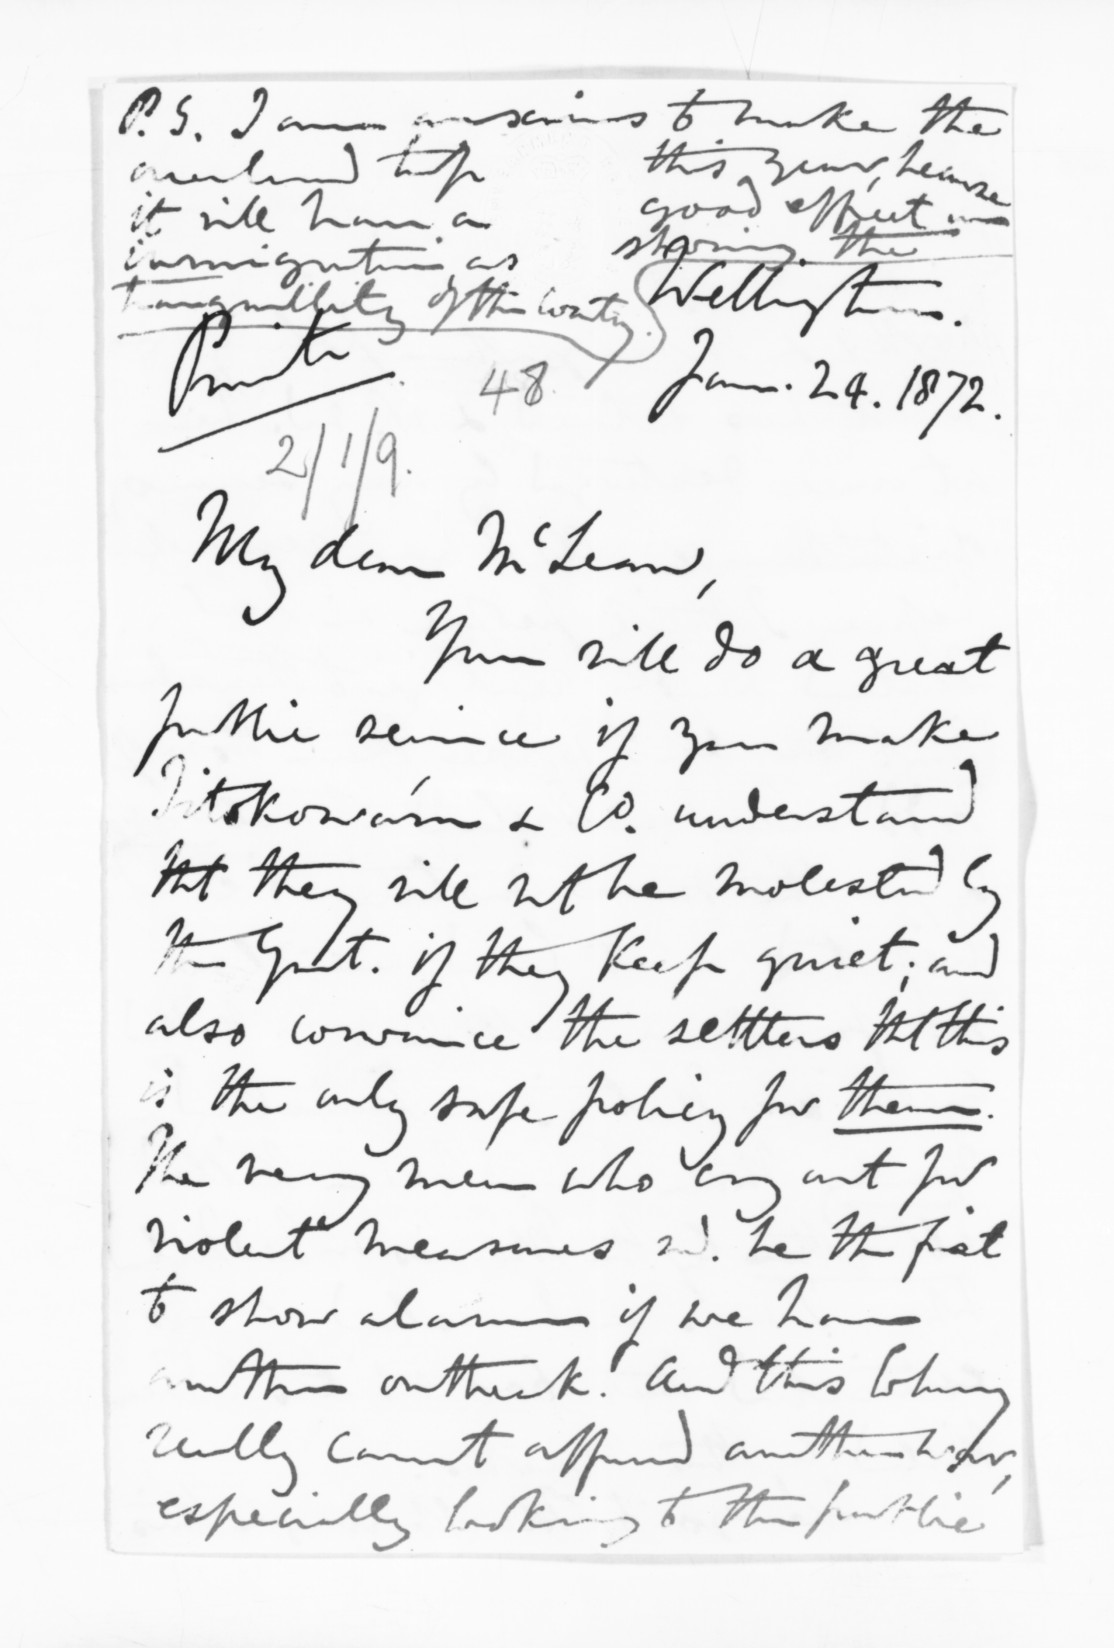 P.S. I am anxious to make the
overland trip this year, because
it will have a good effect on
immigration, as showing the
tranquillity of the country.
Wellington.
Private
48
Jan. 24. 1872.
2/1/9.
My dear McLean,
You will do a great
public service if you make
Titokowaru & Co. understand
tht they will not be molested by
the Govt. if they keep quiet; and
also convince the settlers tht this
is the only safe policy for them.
The very men who cry out for
violent measures wd. be the first
to show alarm if we have
another outbreak. And this Colony
really cannot afford another war,
especially looking to the public